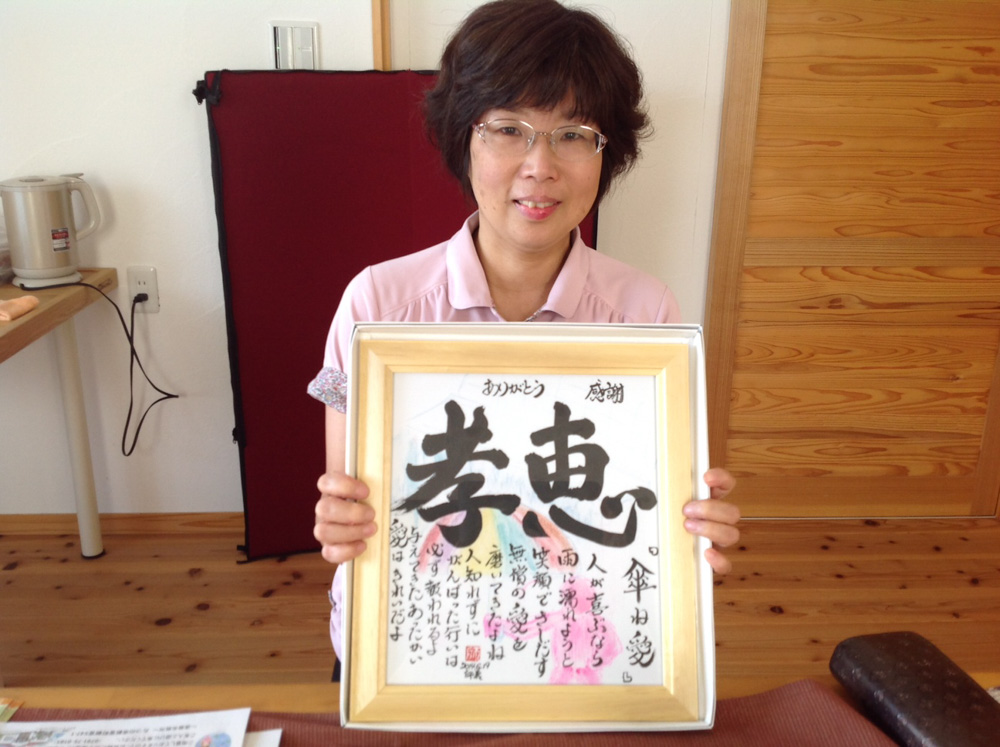 ありがとう
感謝
孝恵
『傘ね愛』
人が喜ぶなら
雨に濡れようと
笑顔でさしだす
無償の愛を
磨いてきたよね
人知れずに
がんばった行いは
必ず報われるよ
与えてきたあったかい
愛はきれいだよ